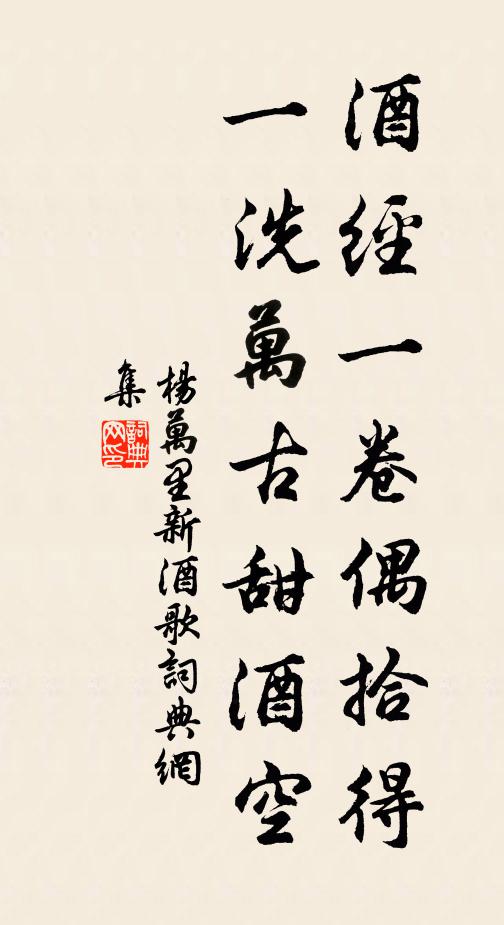 酒經一卷偶拾得
一洗萬古甜酒空
楊萬里新酒歌詞典網
集
詞典网印